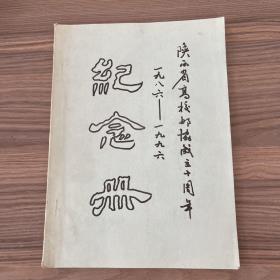 陕西省高校邮协成立十周年
一九八六——一九九六
纪念册